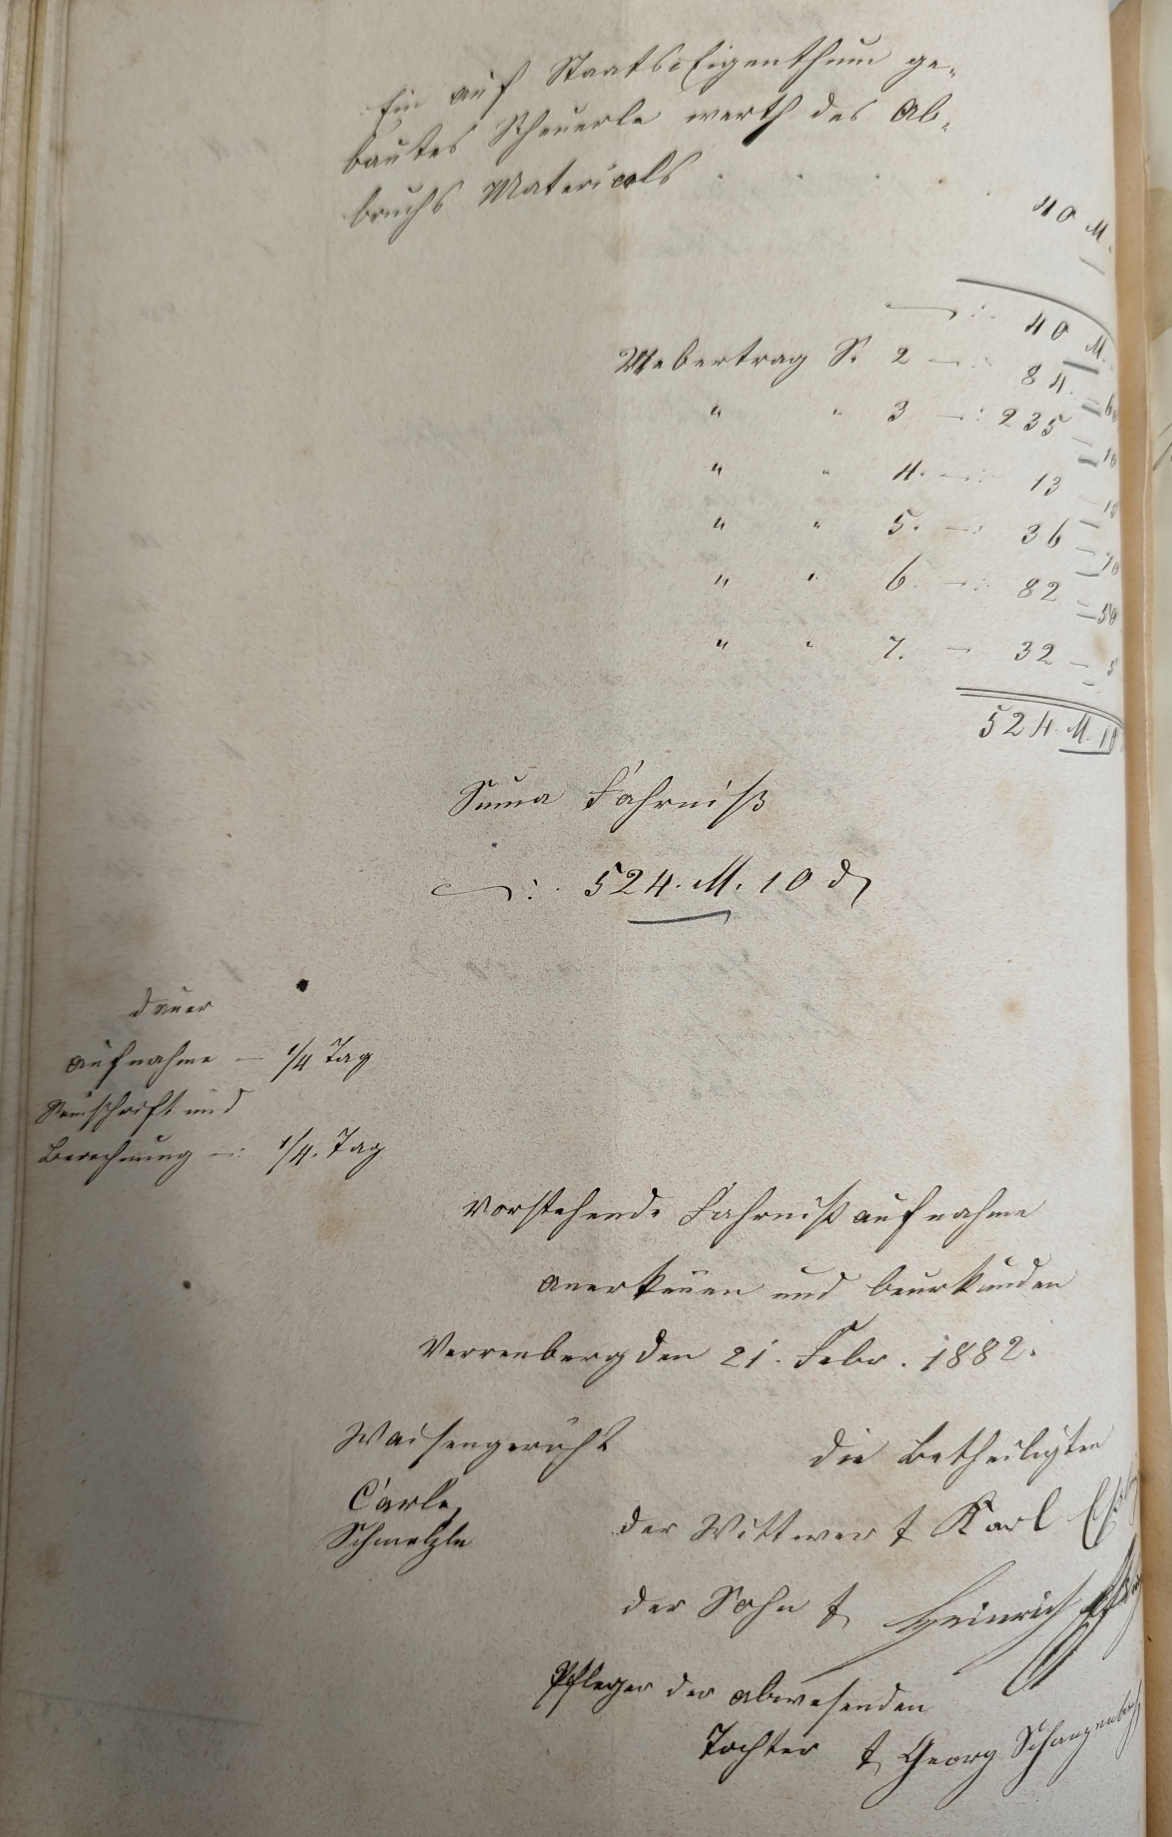 Ein auf Staats-Eigenthum ge-
bautes Scheuerle werth des Ab-
bruchs Materials . . . .
40 M.
—:. 40 M.
Uebertrag S. 2 —:. 84. 60
" " 3 —: 235 — 10
" " 4. —: 13 — 10
" " 5. —: 36 — 70
" " 6. —: 82 — 50
" " 7. — 32 —
524. M. 10
Suma Fahrniß
—:. 524. M. 10 d
Dauer
Aufnahme — 1/4 Tag
Reinschrift und
Berechnung —: 1/4. Tag
Vorstehende Fahrnißaufnahme
anerkennen und beurkunden
Verrenberg den 21. Febr. 1882.
Waisengericht
Die Betheiligten
Carle,
der Wittwer t Karl
Schmelzle
der Sohn t Heinrich
Pfleger der abwesenden
Tochter t Georg